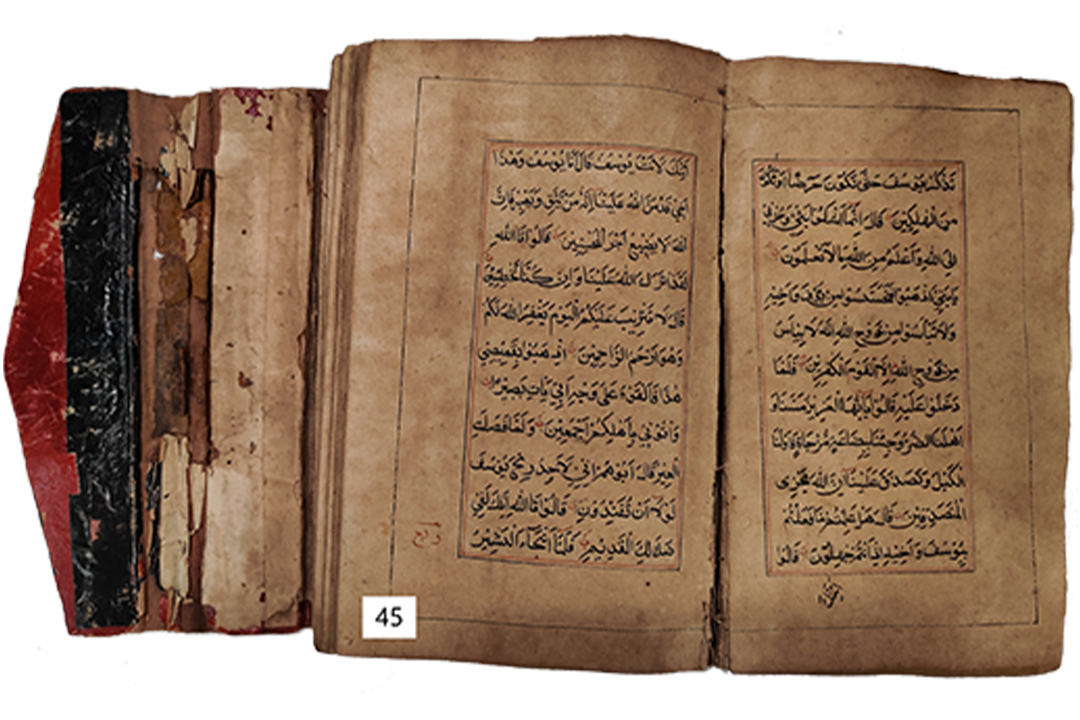 تذكر يوسف حتى تكون حرضا او تكون
من الهلكين قال انما اشكوا بثي وحزني
الى الله واعلم من الله ما لا تعلمون
يابني اذهبوا فتحسسوا من يوسف واخيه
ولا تايئسوا من روح الله انه لا يايئس
من روح الله الا القوم الكفرين فلما
دخلوا عليه قالوا ياايها العزيز مسنا و
اهلنا الضر وجئنا ببضاعة مزجاة فاوف لنا
الكيل وتصدق علينا ان الله يجزى
المتصدقين قال هل علمتم ما فعلتم
بيوسف واخيه اذ انتم جهلون قالوا
ائنك لانت يوسف قال انا يوسف وهذا
اخي قد من الله علينا انه من يتق ويصبر فان
الله لا يضيع اجر المحسنين قالوا تا الله
لقد اثرك الله علينا وان كنا لخطئين
قال لا تثريب عليكم اليوم يغفر الله لكم
وهو ارحم الراحمين اذهبوا بقميصي
هذا فالقوه على وجه ابي يات بصيرا
واتوني باهلكم اجمعين ولما فصلت
العير قال ابوهم اني لاجد ريح يوسف
لولا ان تفندون قالوا تا الله انك لفي
ضللك القديم فلما ان جاء البشير
45